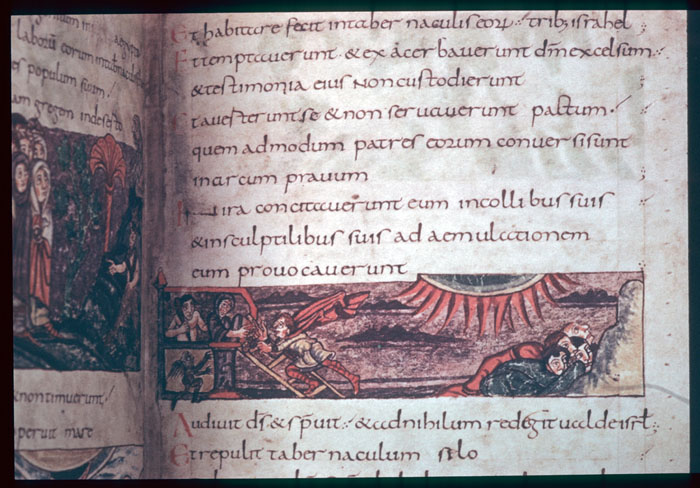 populum suum
gregem indeserto
& non timuerunt
operuit mare
Et habitare fecit in tabernaculis eorum trib; israhel
Et temptauerunt & exacerbauerunt dm excelsum
& testimonia eius non custodierunt
Et auerterunt se & non seruauerunt pactum
quem admodum patres eorum conuersi sunt
in arcum prauum
In ira concitauerunt eum in collibus suis
& in sculptilibus suis ad aemulationem
eum prouocauerunt
Audiuit ds & spreuit & ad nihilum redegit ualde isrl
Et repulit tabernaculum selo